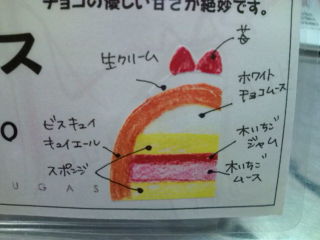 チョコの優しい甘さが絶妙です。
ス
。
苺
生クリーム
ホワイト
チョコムース
ビスキュイ
キュイエール
木いちご
ジャム
スポンジ
木いちご
ムース
UGAS